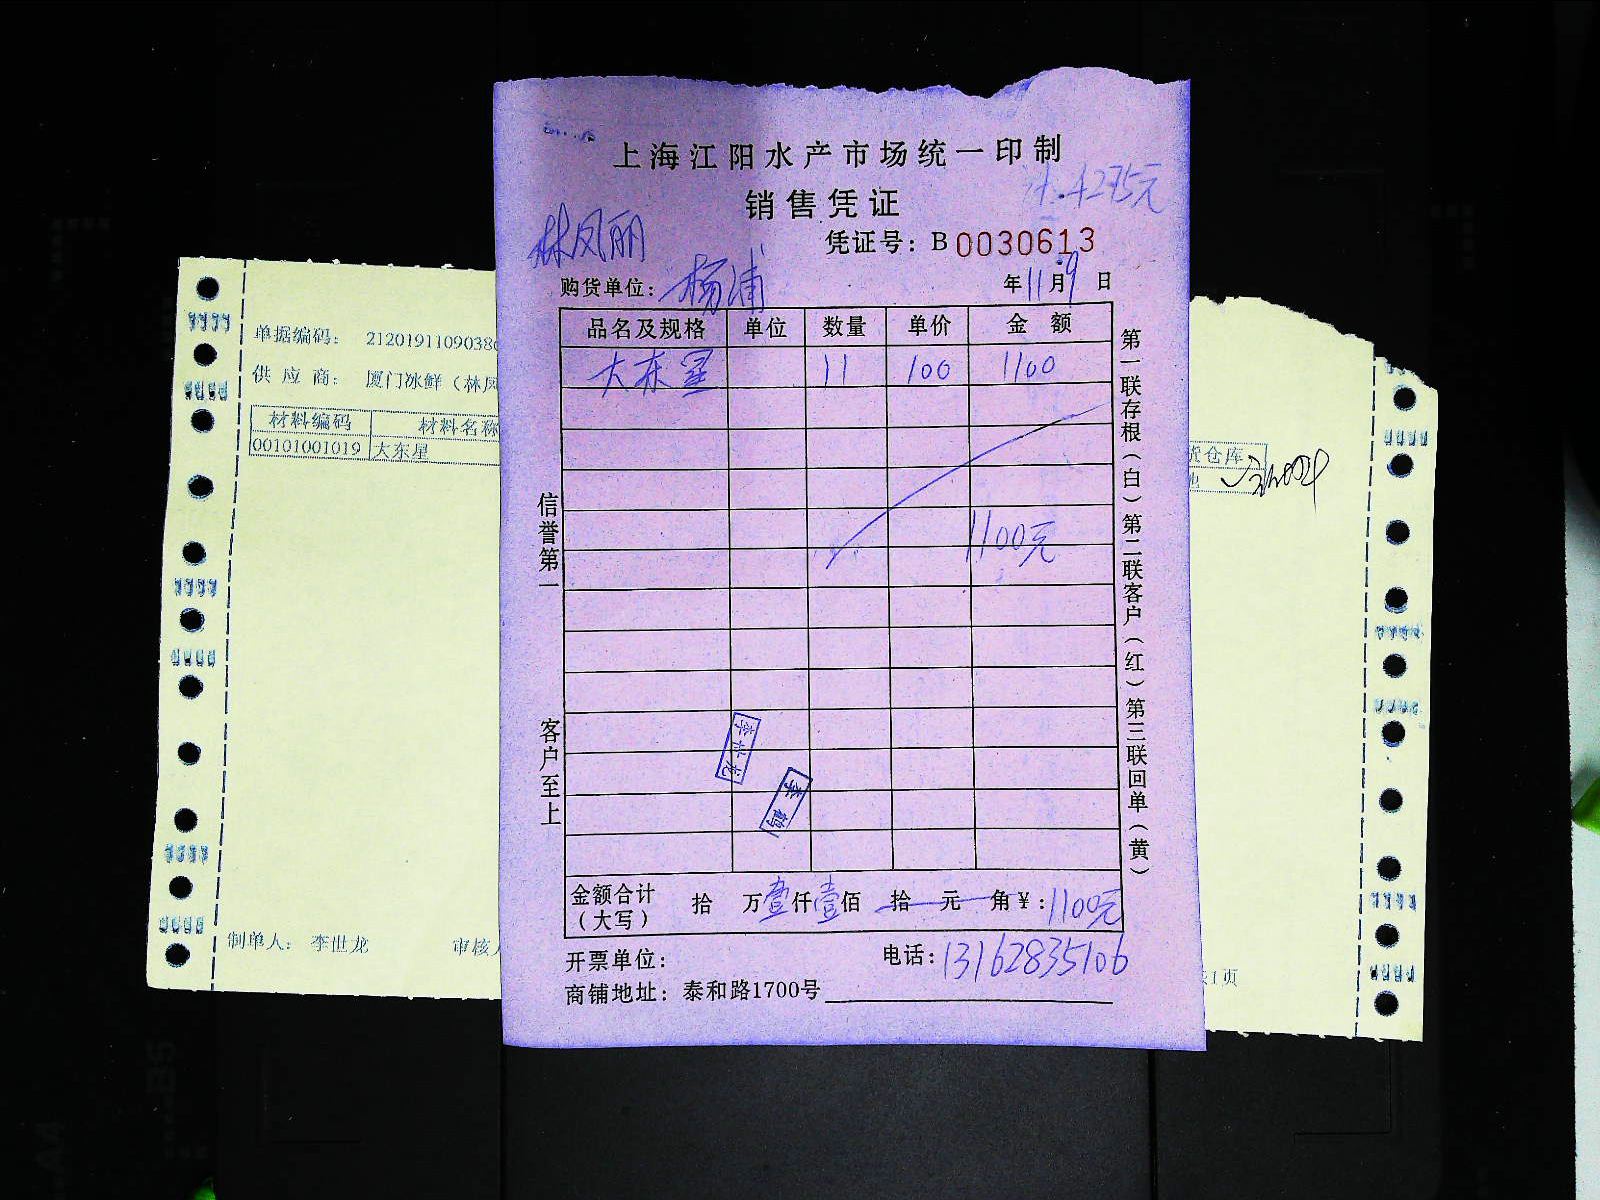 上海江阳水产市场统一印制
4275元
销售凭证
林凤丽
凭证号：B 0030613
购货单位：杨浦 年11月9日
品名及规格 单位 数量 单价 金额
大东星 11 100 1100
1100元
信誉第一
客户至上
第一联存根（白）第二联客户（红）第三联回单（黄）
李世龙
李鹤
金额合计（大写） 拾 万壹仟壹佰 拾 元 角￥：1100元
开票单位： 电话：13162835106
商铺地址：泰和路1700号
单据编码： 2120191109038
供应商： 厦门冰鲜（林凤
材料编码 材料名称
00101001019 大东星
仓库
制单人： 李世龙 审核
1页
B5
A4